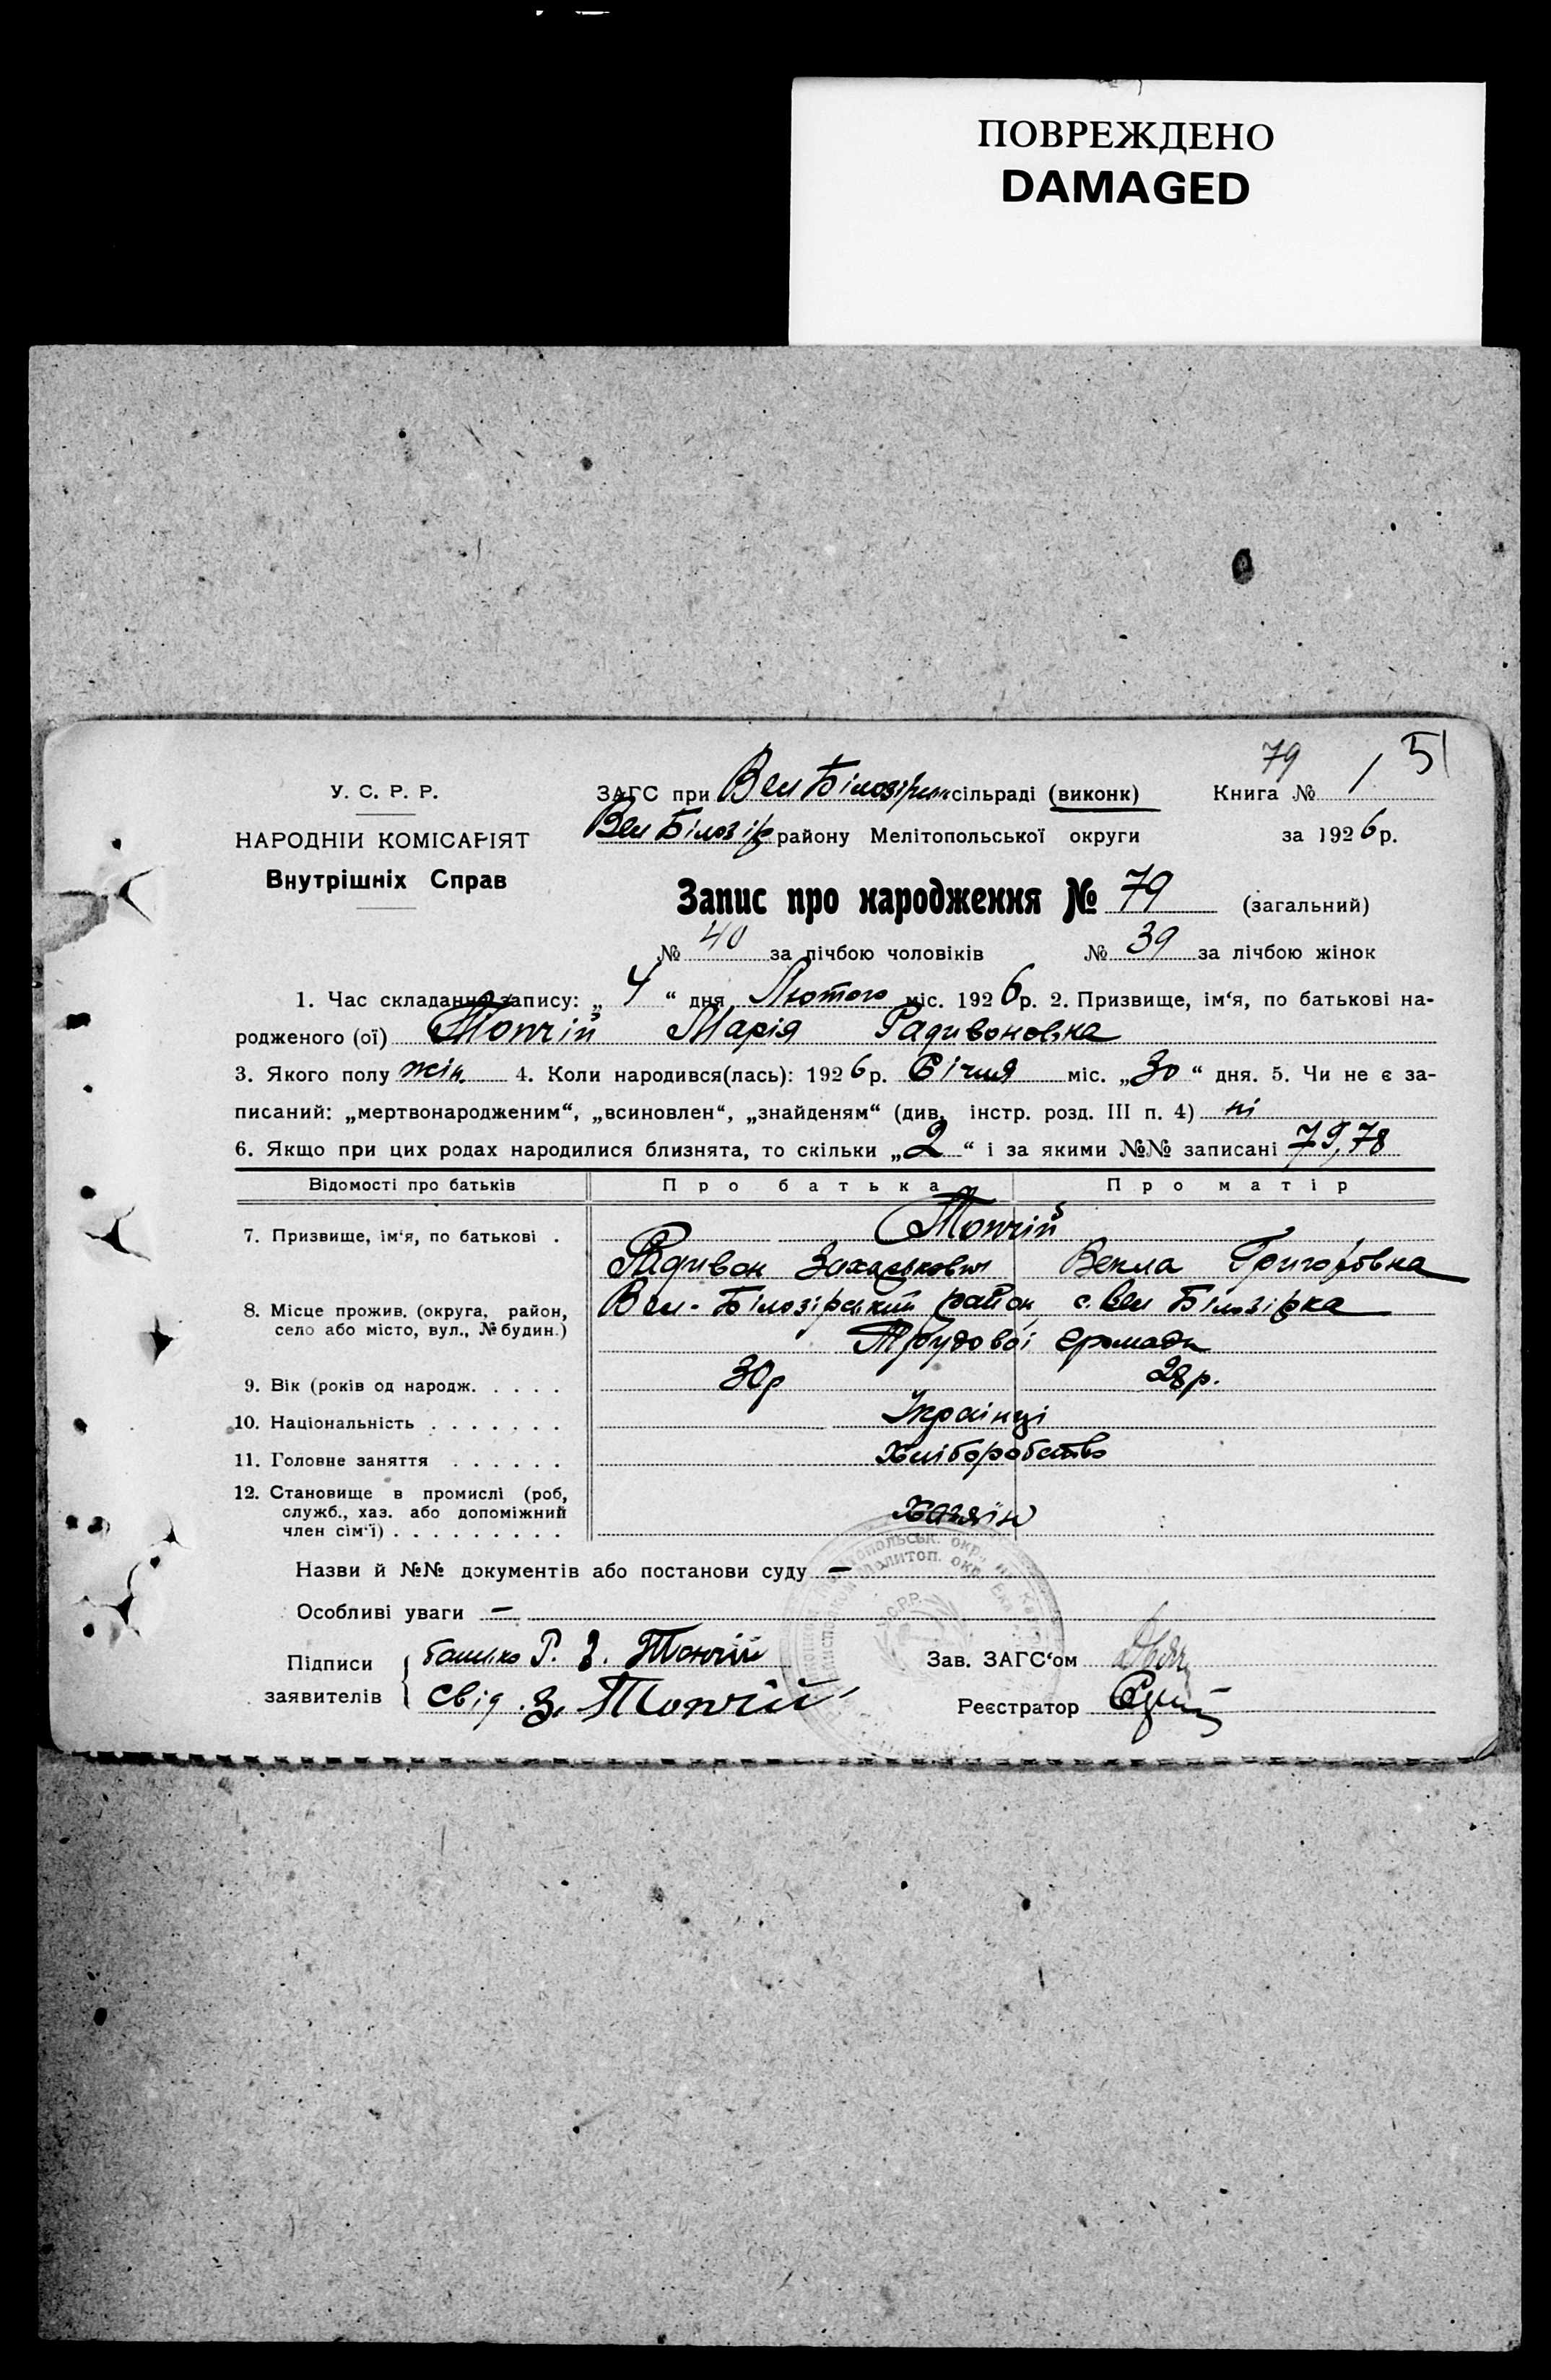 ПОВРЕЖДЕНО
DAMAGED
79 51
У. С. Р. Р.
ЗАГС при Вел Білозірськ сільраді (виконк) Книга № 1
НАРОДНІЙ КОМІСАРІЯТ
Вел Білозір району Мелітопольської округи за 1926 р.
Внутрішніх Справ
Запис про народження № 79 (загальний)
№ 40 за лічбою чоловіків № 39 за лічбою жінок
1. Час складання запису: „ 4 “ дня Лютого міс. 1926 р. 2. Призвище, ім‘я, по батькові на-
родженого (ої) Топчій Марія Радивоновна
3. Якого полу жін. 4. Коли народився(лась): 1926 р. Січня міс. „30“ дня. 5. Чи не є за-
писаний: „мертвонародженим“, „всиновлен“, „знайденям“ (див. інстр. розд. III п. 4) ні
6. Якщо при цих родах народилися близнята, то скільки „2“ і за якими №№ записані 79,78
Відомості про батьків Про батька Про матір
7. Призвище, ім‘я, по батькові . Топчій
Радивон Захарькович Векла Григоровна
8. Місце прожив. (округа, район, Вел-Білозірський район, с. Вел Білозірка
село або місто, вул., № будин.) Трудової громади
9. Вік (років од народж. . . . . 30р 28р.
10. Національність . . . . . . . Українці
11. Головне заняття . . . . . . Хліборобство
12. Становище в промислі (роб,
служб., хаз. або допоміжний
член сім‘ї) . . . . . . . . . Хазяїн
Назви й №№ документів або постанови суду —
Особливі уваги —
Підписи батько Р. З. Топчій Зав. ЗАГС‘ом
заявителів свід. З. Топчій Реєстратор